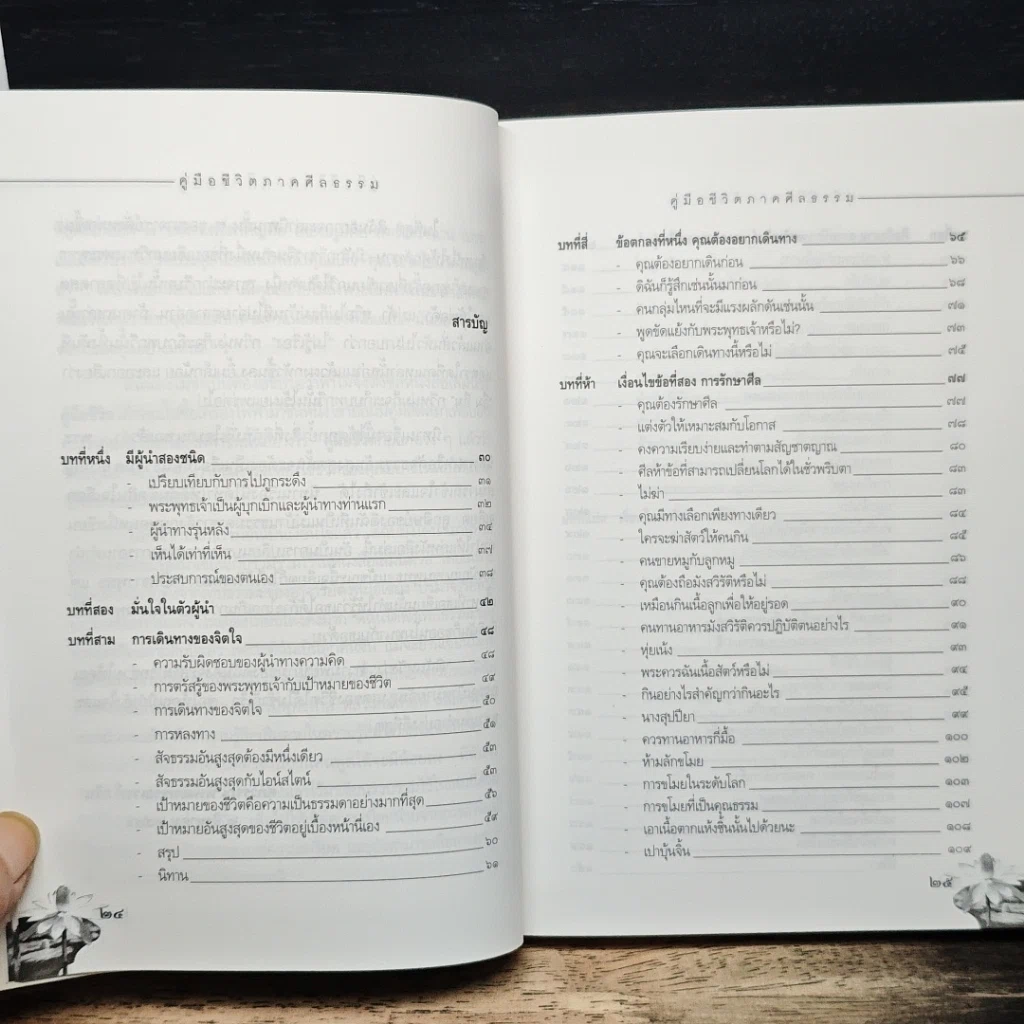 คู่มือชีวิตภาคศีลธรรม
สารบัญ
บทที่หนึ่ง มีผู้นำสองชนิด ๓๐
- เปรียบเทียบกับการไปภูกระดึง ๓๑
- พระพุทธเจ้าเป็นผู้บุกเบิกและผู้นำทางท่านแรก ๓๒
- ผู้นำทางรุ่นหลัง ๓๔
- เห็นได้เท่าที่เห็น ๓๗
- ประสบการณ์ของตนเอง ๓๘
บทที่สอง มั่นใจในตัวผู้นำ ๔๒
บทที่สาม การเดินทางของจิตใจ ๔๘
- ความรับผิดชอบของผู้นำทางความคิด ๔๘
- การตรัสรู้ของพระพุทธเจ้ากับเป้าหมายของชีวิต ๔๙
- การเดินทางของจิตใจ ๕๐
- การหลงทาง ๕๑
- สัจธรรมอันสูงสุดต้องมีหนึ่งเดียว ๕๓
- สัจธรรมอันสูงสุดกับไอน์สไตน์ ๕๓
- เป้าหมายของชีวิตคือความเป็นธรรมดาอย่างมากที่สุด ๕๖
- เป้าหมายอันสูงสุดของชีวิตอยู่เบื้องหน้านี่เอง ๕๙
- สรุป ๖๐
- นิทาน ๖๑
๒๔
คู่มือชีวิตภาคศีลธรรม
บทที่สี่ ข้อตกลงที่หนึ่ง คุณต้องอยากเดินทาง ๖๕
- คุณต้องอยากเดินก่อน ๖๖
- ดิฉันก็รู้สึกเช่นนั้นมาก่อน ๖๘
- คนกลุ่มไหนที่จะมีแรงผลักดันเช่นนั้น ๗๑
- พูดขัดแย้งกับพระพุทธเจ้าหรือไม่? ๗๓
- คุณจะเลือกเดินทางนี้หรือไม่ ๗๕
บทที่ห้า เงื่อนไขข้อที่สอง การรักษาศีล ๗๗
- คุณต้องรักษาศีล ๗๗
- แต่งตัวให้เหมาะสมกับโอกาส ๗๘
- คงความเรียบง่ายและทำตามสัญชาตญาณ ๘๐
- ศีลห้าข้อที่สามารถเปลี่ยนโลกได้ในชั่วพริบตา ๘๓
- ไม่ฆ่า ๘๓
- คุณมีทางเลือกเพียงทางเดียว ๘๔
- ใครจะฆ่าสัตว์ให้คนกิน ๘๕
- คนขายหมูกับลูกหมู ๘๖
- คุณต้องถือมังสวิรัติหรือไม่ ๘๘
- เหมือนกินเนื้อลูกเพื่อให้อยู่รอด ๙๐
- คนทานอาหารมังสวิรัติควรปฏิบัติตนอย่างไร ๙๑
- หุ่ยเน้ง ๙๓
- พระควรฉันเนื้อสัตว์หรือไม่ ๙๔
- กินอย่างไรสำคัญกว่ากินอะไร ๙๕
- นางสุปปิยา ๙๙
- ควรทานอาหารกี่มื้อ ๑๐๐
- ห้ามลักขโมย ๑๐๒
- การขโมยในระดับโลก ๑๐๓
- การขโมยที่เป็นคุณธรรม ๑๐๗
- เอาเนื้อตากแห้งชิ้นนั้นไปด้วยนะ ๑๐๘
- เปาบุ้นจิ้น ๑๐๙
๒๕